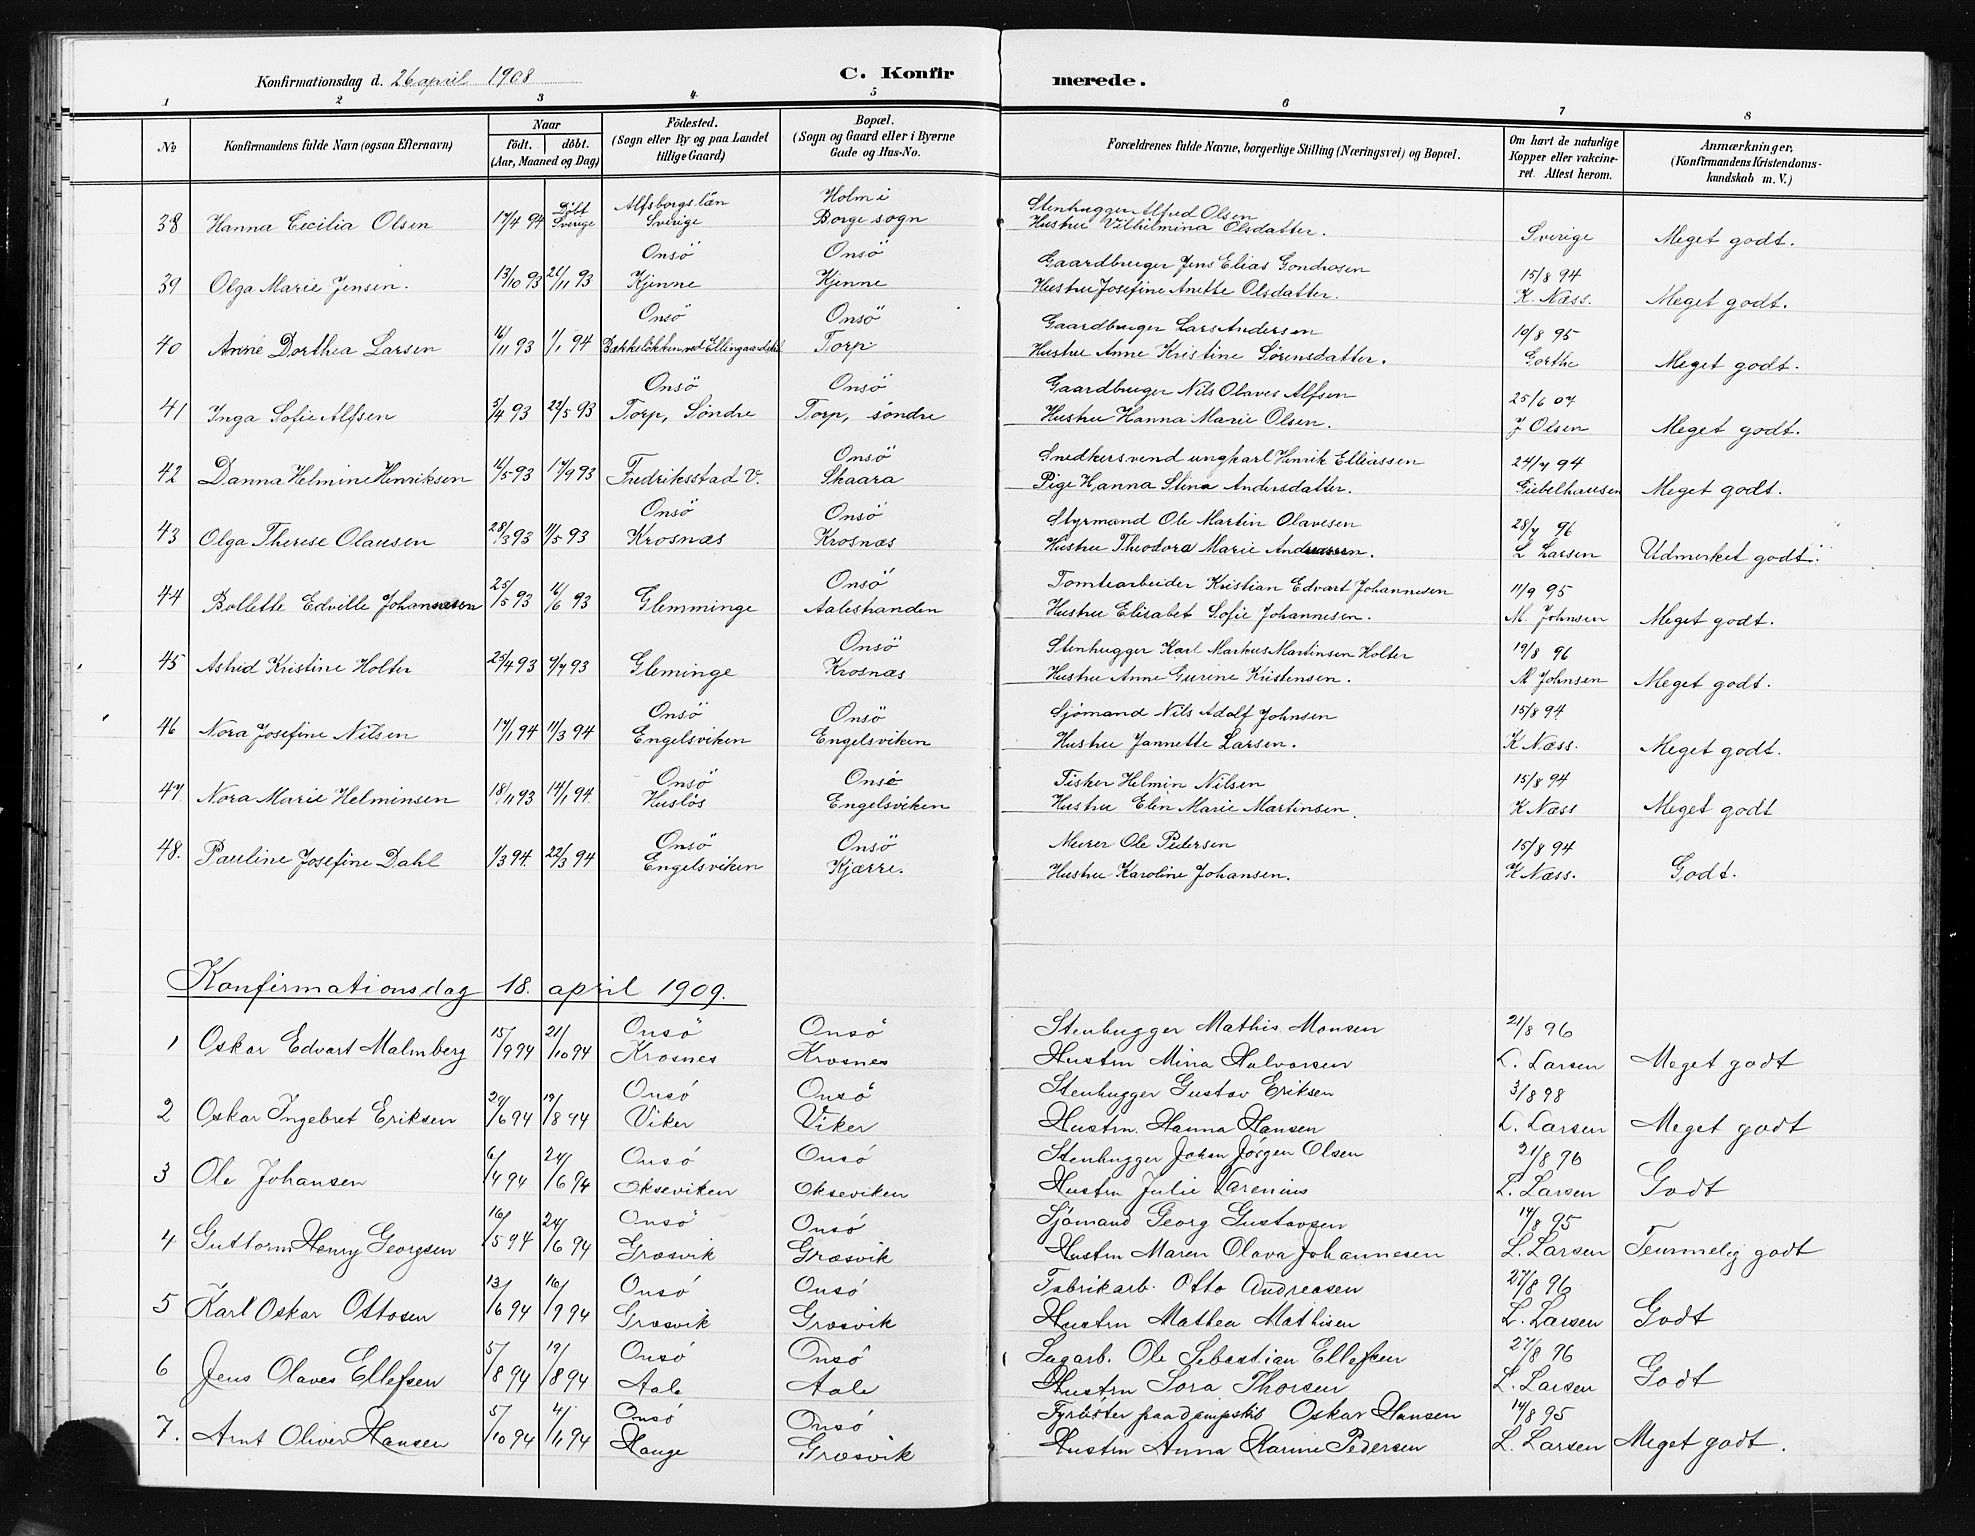 Konfirmationsdag d. 26 april 1908
C. Konfirmerede.
1 2 3 4 5 6 7 8
No
Konfirmandens fulde Navn (ogsaa Efternavn)
Naar
födt. döbt.
(Aar, Maaned og Dag)
Födested.
(Sogn eller By og paa Landet
tillige Gaard)
Bopæl.
(Sogn og Gaard eller i Byerne
Gade og Hus-No.
Forældrenes fulde Navne, borgerlige Stilling (Næringsvei) og Bopæl.
Om havt de naturlige
Kopper eller vakcine-
ret. Attest herom.
Anmærkninger,
(Konfirmandens Kristendoms-
kundskab m. V.)
38 Hanna Cecilia Olsen 17/4 94 Döbt Sverige Alfsborgs län Sverige Holm i Borge sogn Stenhugger Alfred Olsen
Hustru Vilhilmina Olsdatter. Sverige Meget godt.
39 Olga Marie Jensen. 13/10 93 26/11 93 Onsö Kjenne Onsö Kjenne Gaardbruger Jens Elias Gondrosen
Hustru Josefine Anette Olsdatter. 15/8 94 K. Næss. Meget godt.
40 Anne Dorthea Larsen 16/11 93 1/1 94 Onsö Bækkelökken ved Ellingaardskil Onsö Torp Gaardbruger Lars Andersen
Hustru Anne Kristine Sörensdatter. 10/8 95 Gorthe Meget godt.
41 Inga Sofie Alfsen 5/4 93 22/5 93 Onsö Torp, Söndre Onsö Torp, söndre Gaardbruger Nils Olaves Alfsen
Hustru Hanna Marie Olsen. 25/6 07 J Olsen Meget godt.
42 Danna Helmine Henriksen 16/5 93 17/9 93 Fredriksstad V. Onsö Skaara Snedkersvend ungkarl Henrik Elliassen
Pige Hanna Stina Andersdatter. 24/7 94 Giebelhausen Meget godt.
43 Olga Therese Olausen 28/3 93 11/5 93 Onsö Krosnæs Onsö Krosnæs Styrmand Ole Martin Olavesen
Hustru Theodora Marie Andreassen. 28/7 96 L Larsen Udmerket godt.
44 Bollette Edville Johannesen 25/5 93 16/6 93 Glemminge Onsö Aalestranden Tomtearbeider Kristian Edvart Johannesen
Hustru Elisabet Sofie Johannesen. 11/9 95 M. Johnsen Meget godt.
45 Astrid Kristine Holter 25/4 93 9/7 93 Gleminge Onsö Krosnæs Stenhugger Karl Markus Martinsen Holter
Hustru Anne Gurene Kristensen. 19/8 96 M Johnsen Meget godt.
46 Nora Josefine Nilsen 17/1 94 11/3 94 Onsö Engelsviken Onsö Engelsviken Sjömand Nils Adolf Johnsen
Hustru Jannette Larsen. 15/8 94 K Næss. Meget godt.
47 Nora Marie Helminsen 18/11 93 14/1 94. Onsö Huslös Onsö Engelsviken Fisker Helmin Nilsen
Hustru Elen Marie Martinsen. 15/8 94 K Næss Meget godt
48. Pauline Josefine Dahl 1/3 94. 22/3 94 Onsö Engelsviken Onsö Kjærre. Murer Ole Pedersen
Hustru Karoline Johansen. 15/8 94 K Næss. Godt.
Konfirmationsdag 18. april 1909.
1 Oskar Edvart Malmberg 15/9 94 21/10 94 Onsö Krosnes Onsö Krosnes Stenhugger Mathis Monsen
Hustru Mina Halvorsen 21/8 96 L. Larsen Meget godt
2 Oskar Ingebret Eriksen 29/6 94 19/8 94 Onsö Viker Onsö Viker Stenhugger Gustav Eriksen
Hustru. Hanna Hansen 3/8 98 L. Larsen Meget godt
3 Ole Johansen 6/4 94 24/6 94 Onsö Okseviken Onsö Okseviken Stenhugger Johan Jörgen Olsen
Hustru Julie Varenius 21/8 96 L. Larsen Godt
4 Guttorm Henry Georgsen 16/5 94 24/6 94 Onsö Græsvik Onsö Græsvik Sjömand Georg Gustavsen
Hustru Maren Olava Johannesen 14/8 95 L. Larsen Temmelig godt
5 Karl Oskar Ottosen 13/6 94 16/9 94 Onsö Græsvik Onsö Græsvik Fabrikarb. Otto Andreasen
Hustru Mathea Mathisen 27/8 96 L. Larsen Godt
6 Jens Olaves Ellefsen 5/8 94 19/8 94 Onsö Aale Onsö Aale Sagarb. Ole Sebastian Ellefsen
Hustru Lora Thorsen 27/8 96 L. Larsen Godt
7. Arnt Oliver Hansen 5/10 94 4/11 94 Onsö Hauge Onsö Græsvik Fyrböter paa dampskib Oskar Hansen
Hustru Anna Karine Pedersen 14/8 95 L. Larsen Meget godt.